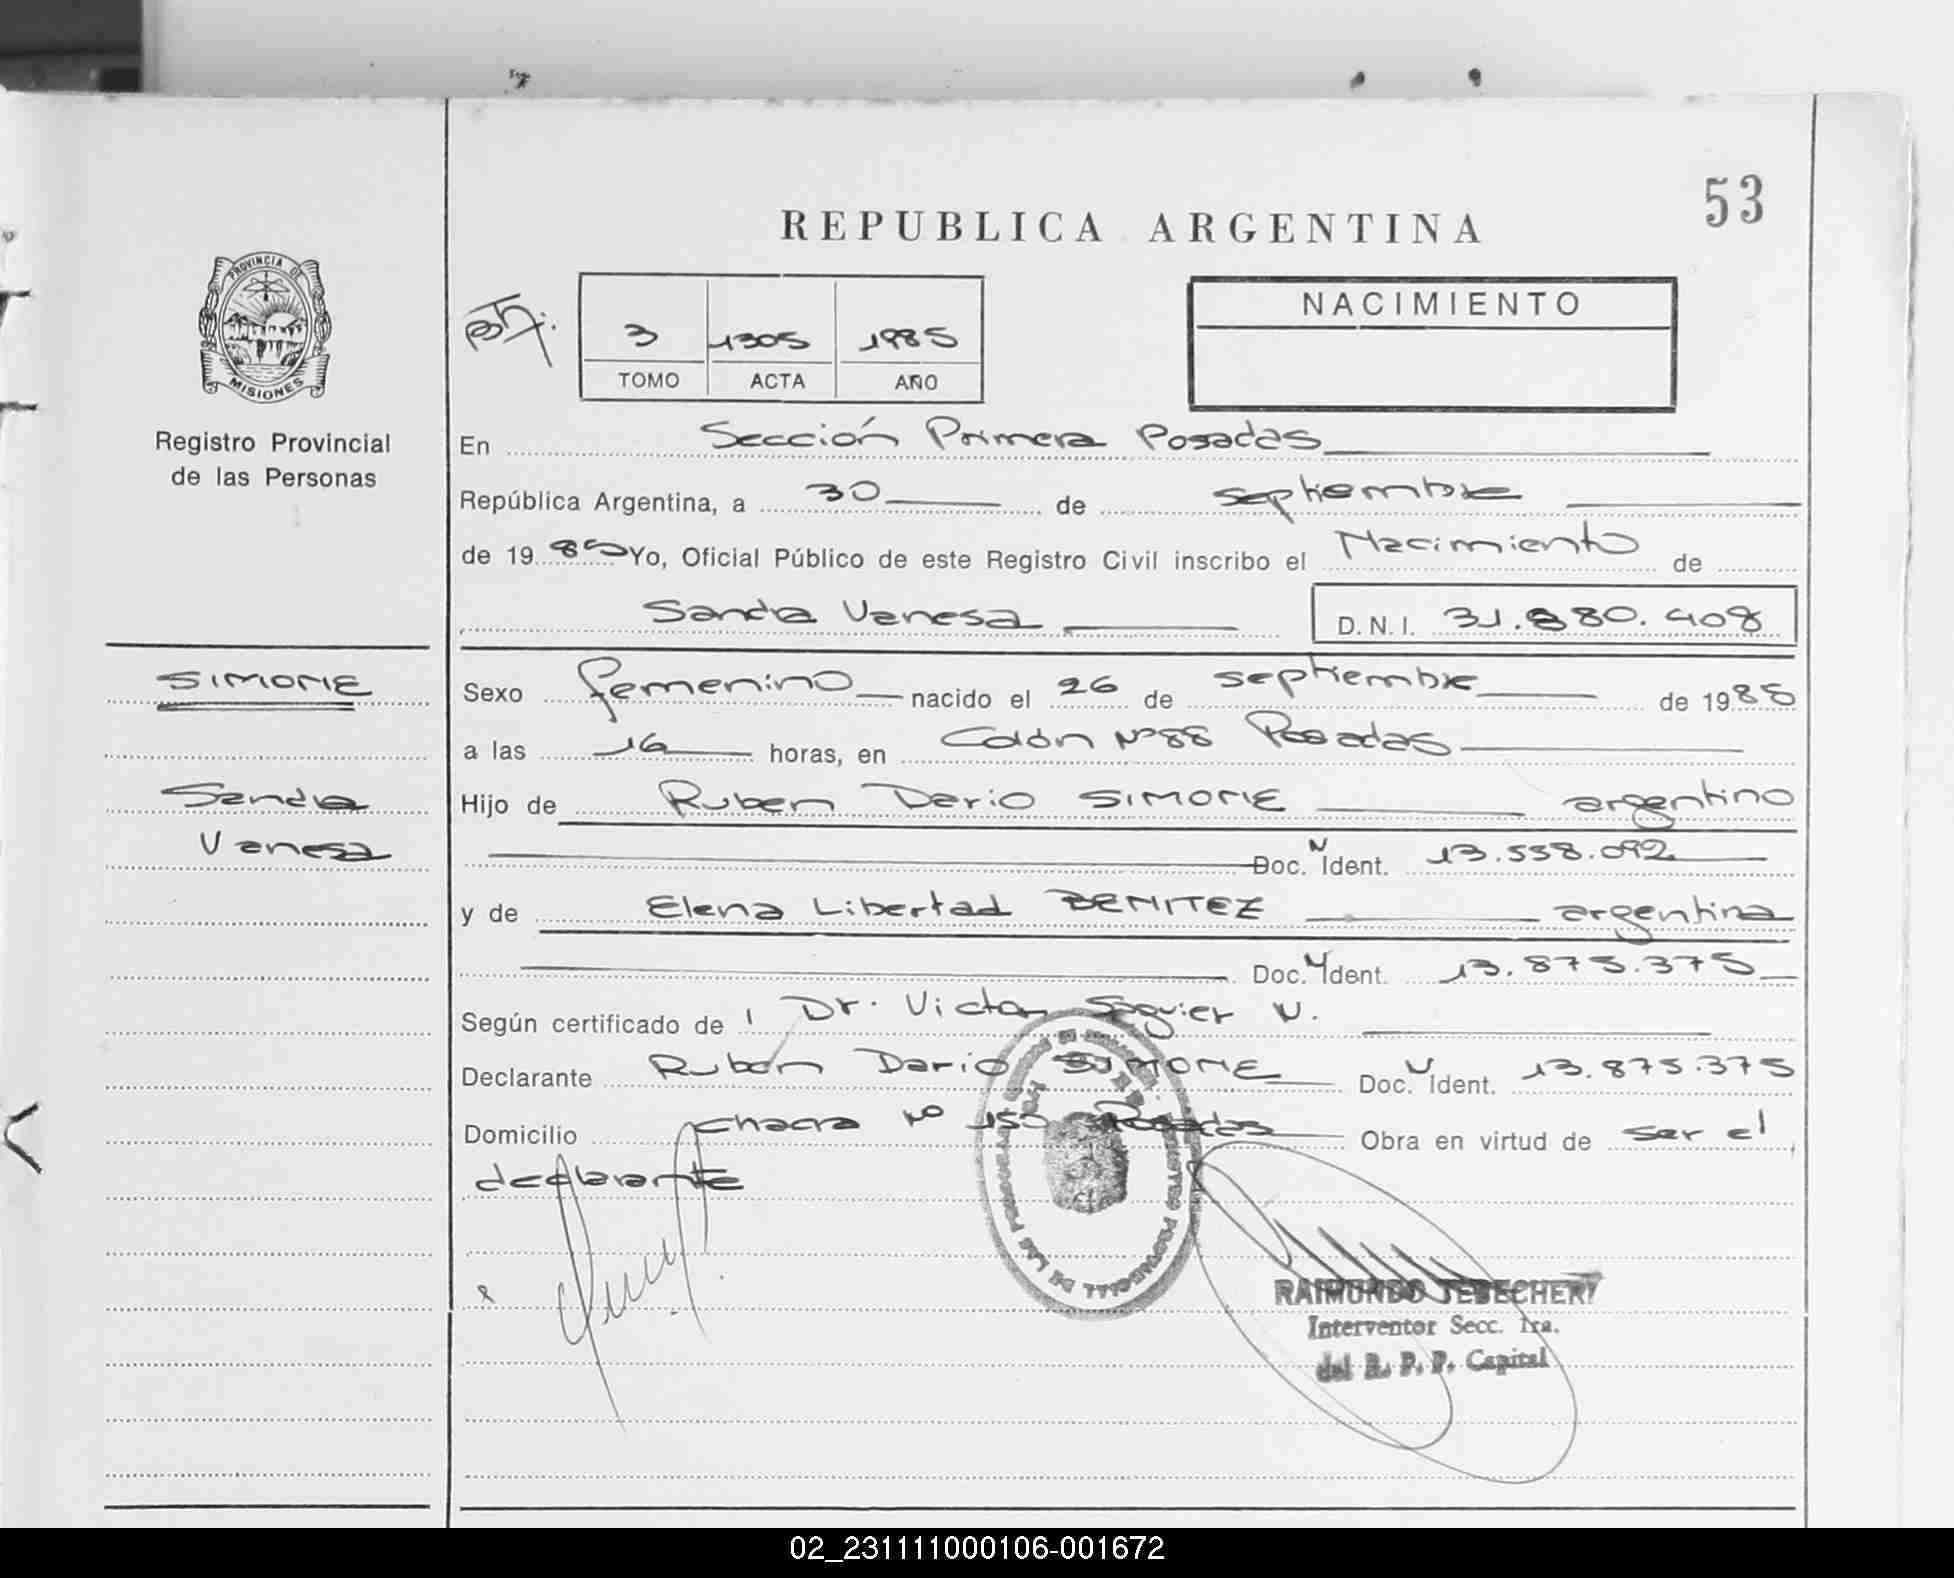 53
REPUBLICA ARGENTINA
PROVINCIA DE
MISIONES
Registro Provincial
de las Personas
3 1305 1985
TOMO ACTA AÑO
NACIMIENTO
En Sección Primera Posadas
República Argentina, a 30 de septiembre
de 1985 Yo, Oficial Público de este Registro Civil inscribo el Nacimiento de
Sandra Vanesa D.N.I. 31.880.408
SIMONE
Sandra
Vanesa
Sexo femenino nacido el 26 de septiembre de 1985
a las 16 horas, en Colón Nº 88 Posadas
Hijo de Ruben Dario SIMONE argentino
Doc. Ident. 13.558.092
y de Elena Libertad BENITEZ argentina
Doc. Ident. 13.875.375
Según certificado de Dr. Victor Saguier V.
Declarante Ruben Dario SIMONE Doc. Ident. 13.875.375
Domicilio chacra Nº 153 Posadas Obra en virtud de ser el
declarante
RAIMUNDO TEBECHERY
Interventor Secc. 1ra.
del R. P. P. Capital
02_231111000106-001672